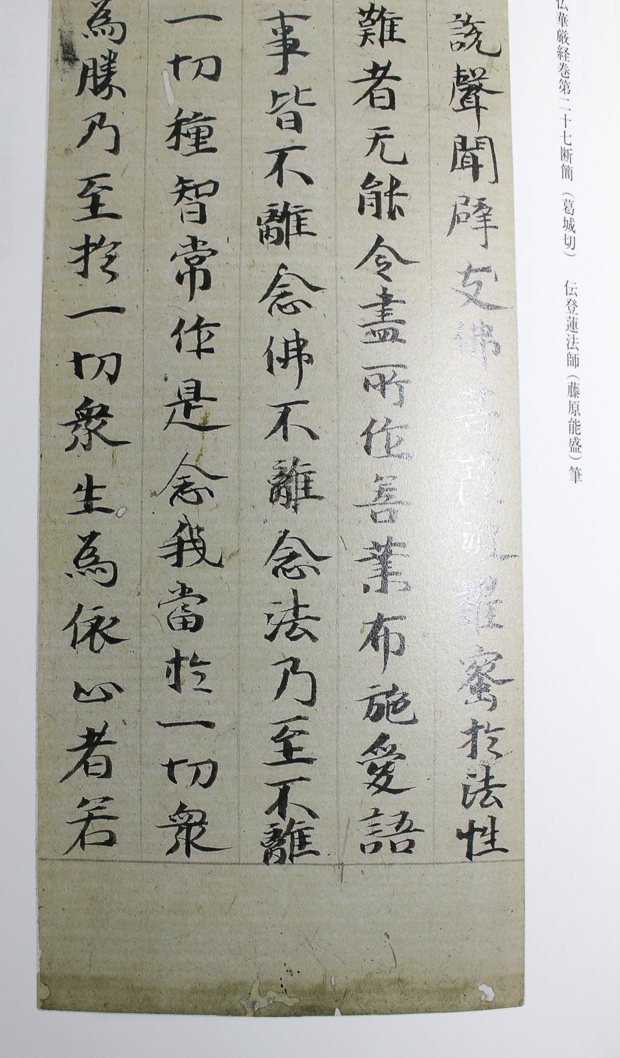 仏華厳経巻第二十七断簡（葛城切）　伝登蓮法師（藤原能盛）筆
説聲聞辟支佛菩薩波羅蜜於法性
難者无能令盡所作善業布施愛語
事皆不離念佛不離念法乃至不離
一切種智常作是念我當於一切衆
為勝乃至於一切衆生為依止者若